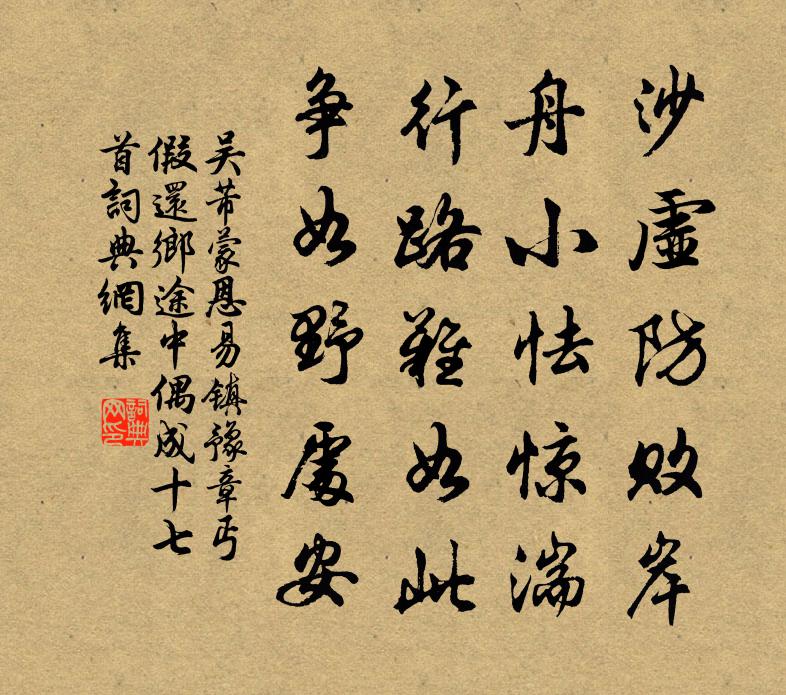 沙虛防敗岸
舟小怯惊湍
行路難如此
争如野處安
吴芾蒙恩易鎮豫章丐
假還鄉途中偶成十七
首詞典網集
詞典网印